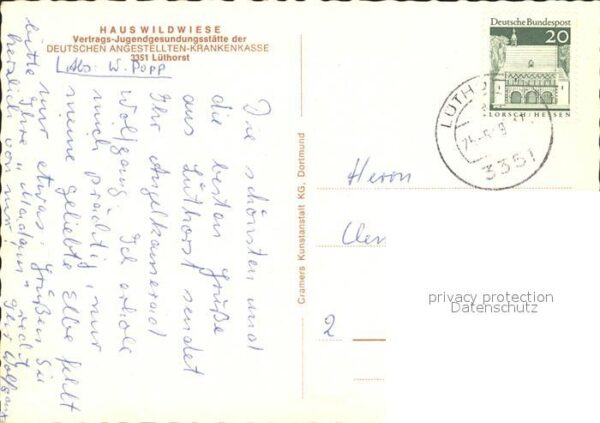 HAUS WILDWIESE
Vertrags-Jugendgesundungsstätte der
DEUTSCHEN ANGESTELLTEN-KRANKENKASSE
3351 Lüthorst
Abs. W. Popp
Die schönsten und
die besten Grüße
aus Lüthorst sendet
Ihr Angelkamerad
Wolfgang. Ich erhole
mich prächtig, nur
meine geliebte Elbe fehlt
mir etwas. Grüßen Sie
bitte Ihre "Madam" recht
herzlich von mir! Ihr Wolfgang
Cramers Kunstanstalt KG, Dortmund
Deutsche Bundespost
20
LORSCH/HESSEN
LÜTHO
3351
Herrn
2
privacy protection
Datenschutz